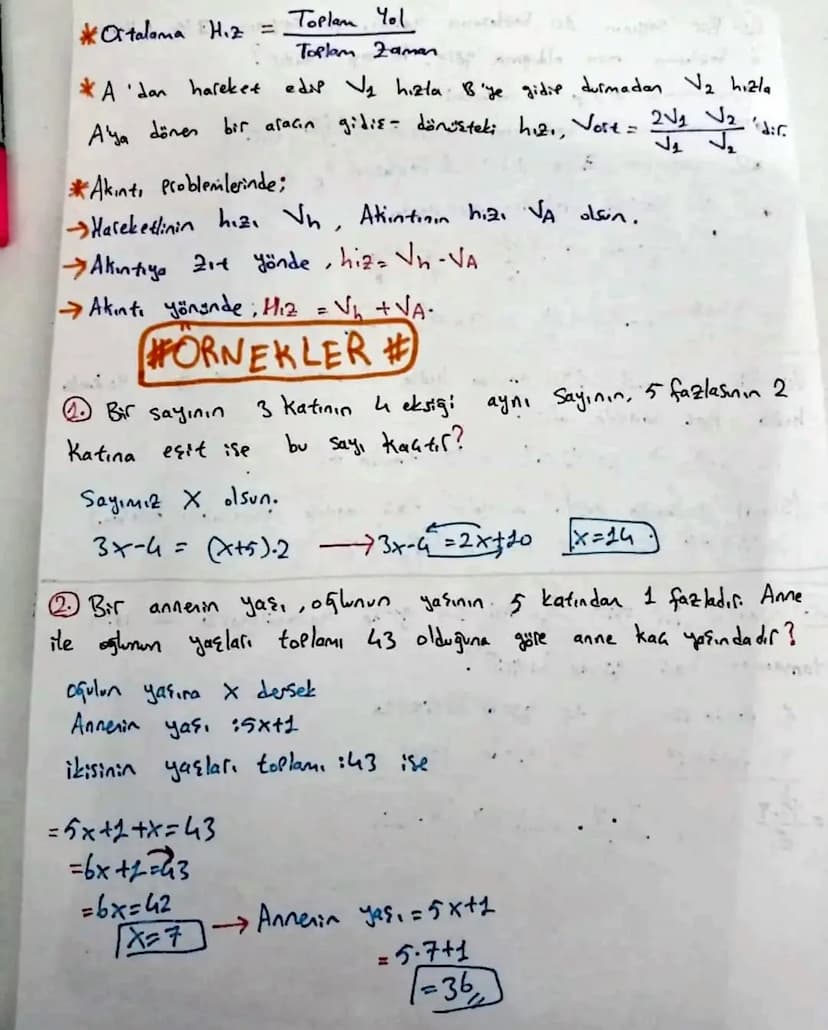 * Ortalama Hız = Toplam Yol / Toplam Zaman
* A'dan hareket edip V1 hızla B'ye gidip durmadan V2 hızla
A'ya dönen bir aracın gidiş-dönüşteki hızı, Vort = 2V1 V2 / V1 V2 'dir.
* Akıntı Problemlerinde;
→ Hareketlinin hızı Vh, Akıntının hızı VA olsun.
→ Akıntıya zıt yönde, hız = Vh - VA
→ Akıntı yönünde; Hız = Vh + VA.
#ÖRNEKLER #
1. Bir sayının 3 katının 4 eksiği aynı sayının, 5 fazlasının 2
katına eşit ise bu sayı kaçtır?
Sayımız x olsun.
3x-4 = (x+5).2 → 3x-4 = 2x+10 x=14
2. Bir annenin yaşı, oğlunun yaşının 5 katından 1 fazladır. Anne
ile oğlunun yaşları toplamı 43 olduğuna göre anne kaç yaşındadır?
oğulun yaşına x dersek
Annenin yaşı :5x+1
ikisinin yaşları toplamı :43 ise
=5x+1+x=43
=6x+1=43
=6x=42
x=7 → Annenin yaşı =5x+1
= 5.7+1
=36